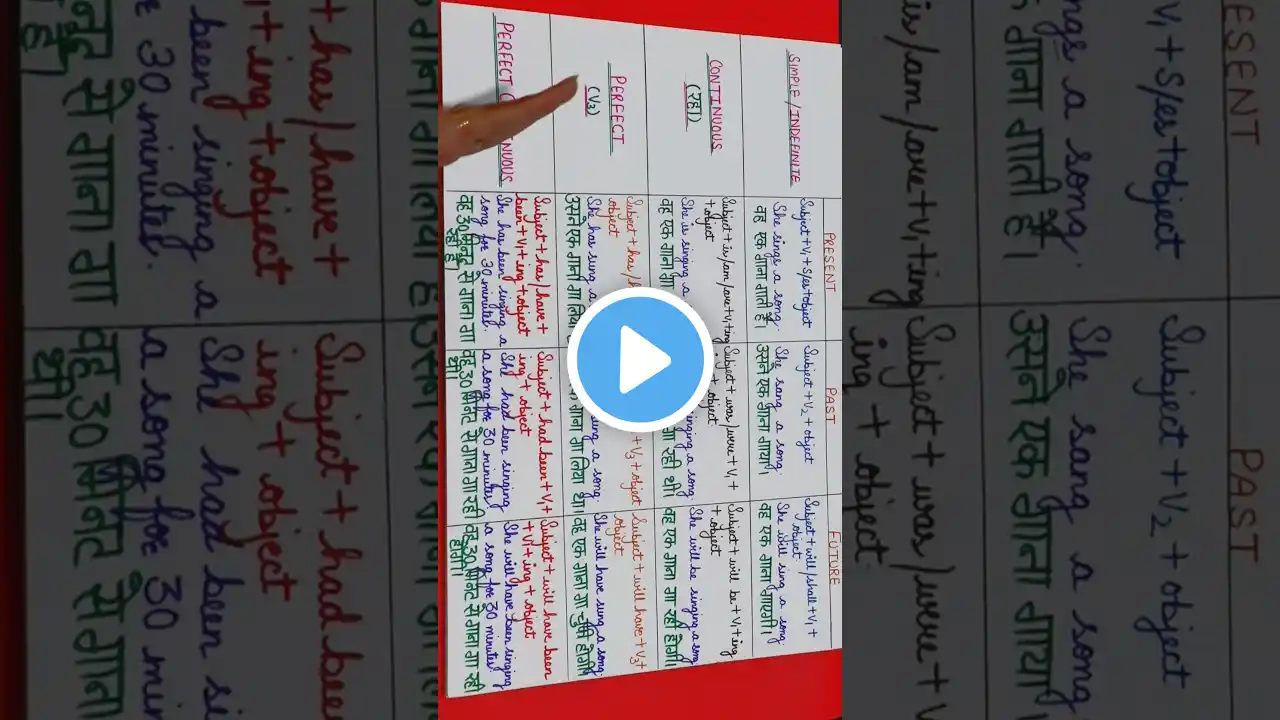 PRESENT
PAST
FUTURE
SIMPLE/INDEFINITE
Subject+V1+S/es+object
She sings a song.
वह एक गाना गाती है।
Subject+V2+object
She sang a song.
उसने एक गाना गाया।
Subject+will/shall+V1+
object.
She will sing a song.
वह एक गाना गाएगी।
CONTINUOUS
(रहा)
Subject+is/am/are+V1+ing
+object
She is singing a
वह एक गाना गा
Subject+was/were+V1+
ing+object
singing a song.
गा रही थी।
Subject+will be+V1+ing
+object
She will be singing a song
वह एक गाना गा रही होगी।
PERFECT
(V3)
Subject+has/
object
She has sung a
उसने एक गाना गा लिया
+V3+object
sung a song.
गाना गा लिया था।
Subject+will have+V3+
object
She will have sung a song.
वह एक गाना गा चुकी होगी।
PERFECT
Subject+has/have+
been+V1+ing+object
She has been singing a
song for 30 minutes.
वह 30 मिनट से गाना गा
रही है।
Subject+had been+V1+
ing+object
She had been singing
a song for 30 minutes
वह 30 मिनट से गाना गा रही
थी।
Subject+will have been
+V1+ing+object
She will have been singing
a song for 30 minutes
वह 30 मिनट से गाना गा रही
होगी।